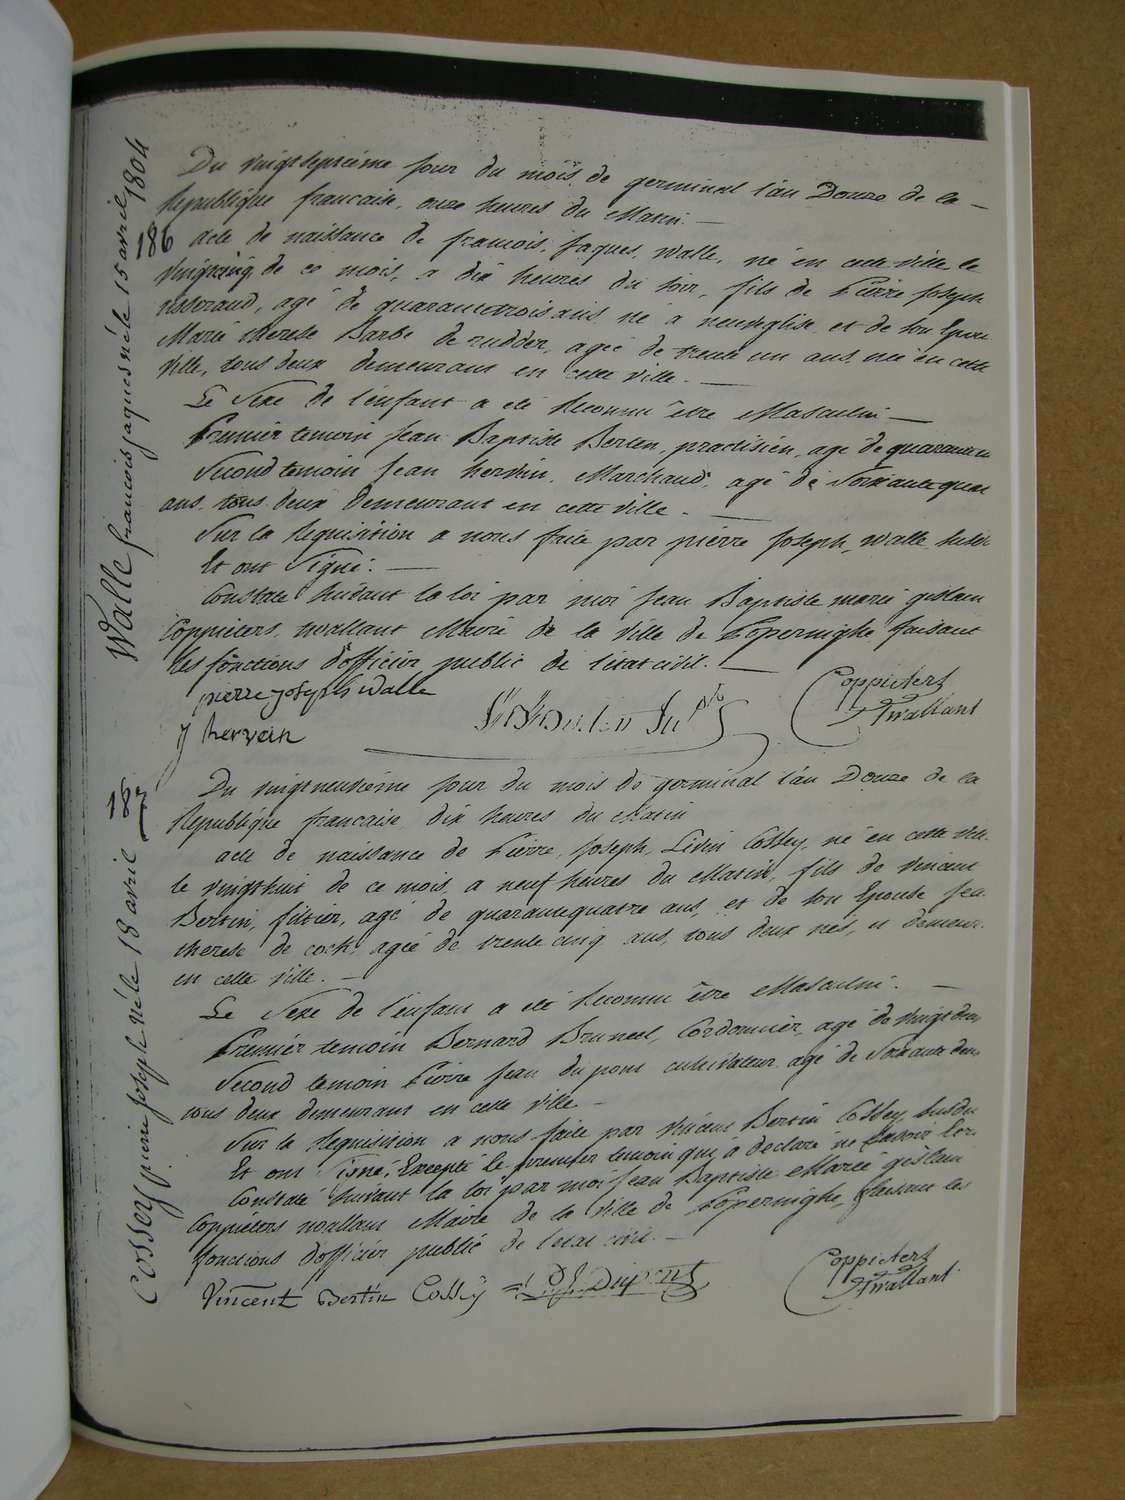 Walle francois jaques né le 15 avril 1804
186
Du vingtseptieme jour du mois de germinal l'an Douze de la
Republique francaise, onze heures du Matin.
acte de naissance de francois, jaques, walle, né en cette ville le
vingtcinq de ce mois, a dix heures du soir, fils de Pierre joseph
agé de quarantetrois ans né a neuveglise et de son Epou
Marie therese Barbe de rudder, agée de trente un ans née en cette
ville, tous deux demeurans en cette ville.
Le Sexe de l'enfant a eté Reconnu être Masculin
Premier temoin jean Baptiste Berten, practisien, agé de quarante
Second temoin jean hervein, Marchand, agé de Soixante quat
ans, tous deux demeurant en cette ville.
Sur la Requisition a nous faite par pierre joseph walle susdit
Et ont Signé.
Constaté suivant la loi par moi jean Baptiste marie gislain
Coppieters wallant Maire de la ville de Poperinghe faisant
les fonctions d'officier public de l'etat civil.
pierre joseph walle
j hervein
Coppieters
Twallant
187
Cossey pierre joseph né le 18 avril
Du vingtneuvieme jour du mois de germinal l'an Douze de la
Republique francaise dix heures du Matin
acte de naissance de Pierre, joseph, Livin Cossey, né en cette ville
le vingthuit de ce mois, a neuf heures du Matin, fils de vincent
Bertin, filtier, agé de quarantequatre ans, et de son Epouse jea
therese de cock, agée de trente cinq ans, tous deux nés, et demeur
en cette ville.
Le Sexe de l'enfant a eté Reconnu être Masculin.
Premier temoin Bernard Bruneel, Cordonnier, agé de vingt deux
Second temoin Pierre jean dupont cultivateur agé de Soixante deux
tous deux demeurans en cette ville
Sur la Requisition a nous faite par vincent Bertin Cossey susdit
Et ont signé, Excepté le premier temoin qui a declaré ne savoir
Constaté suivant la loi par moi jean Baptiste Marie gislain
Coppieters wallant Maire de la ville de Poperinghe, faisant les
fonctions d'officier public de l'etat civil.
Vincent Bertin Cossey
P J Dupont
Coppieters
Twallant